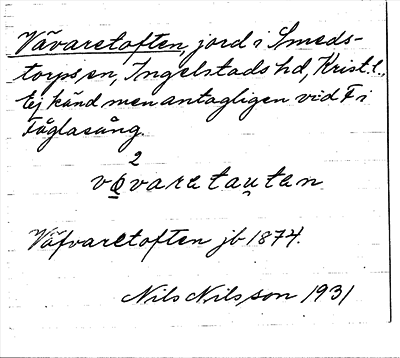 Vävaretoften, jord i Smeds-
torps sn, Ingelstads hd, Krist. l.,
Ej känd men antagligen vid F i
Fåglasång.
2
vøvaretau̯ten
Väfvaretoften jb 1874.
Nils Nilsson 1931